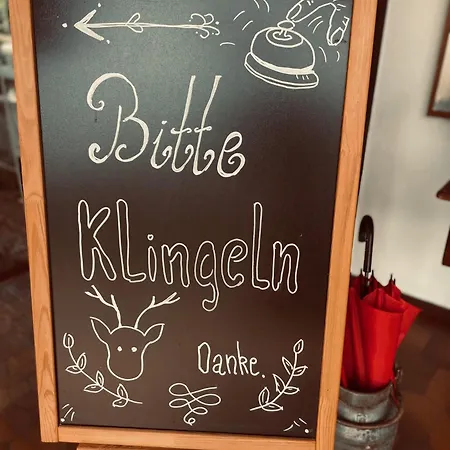 Bitte
Klingeln
Danke.